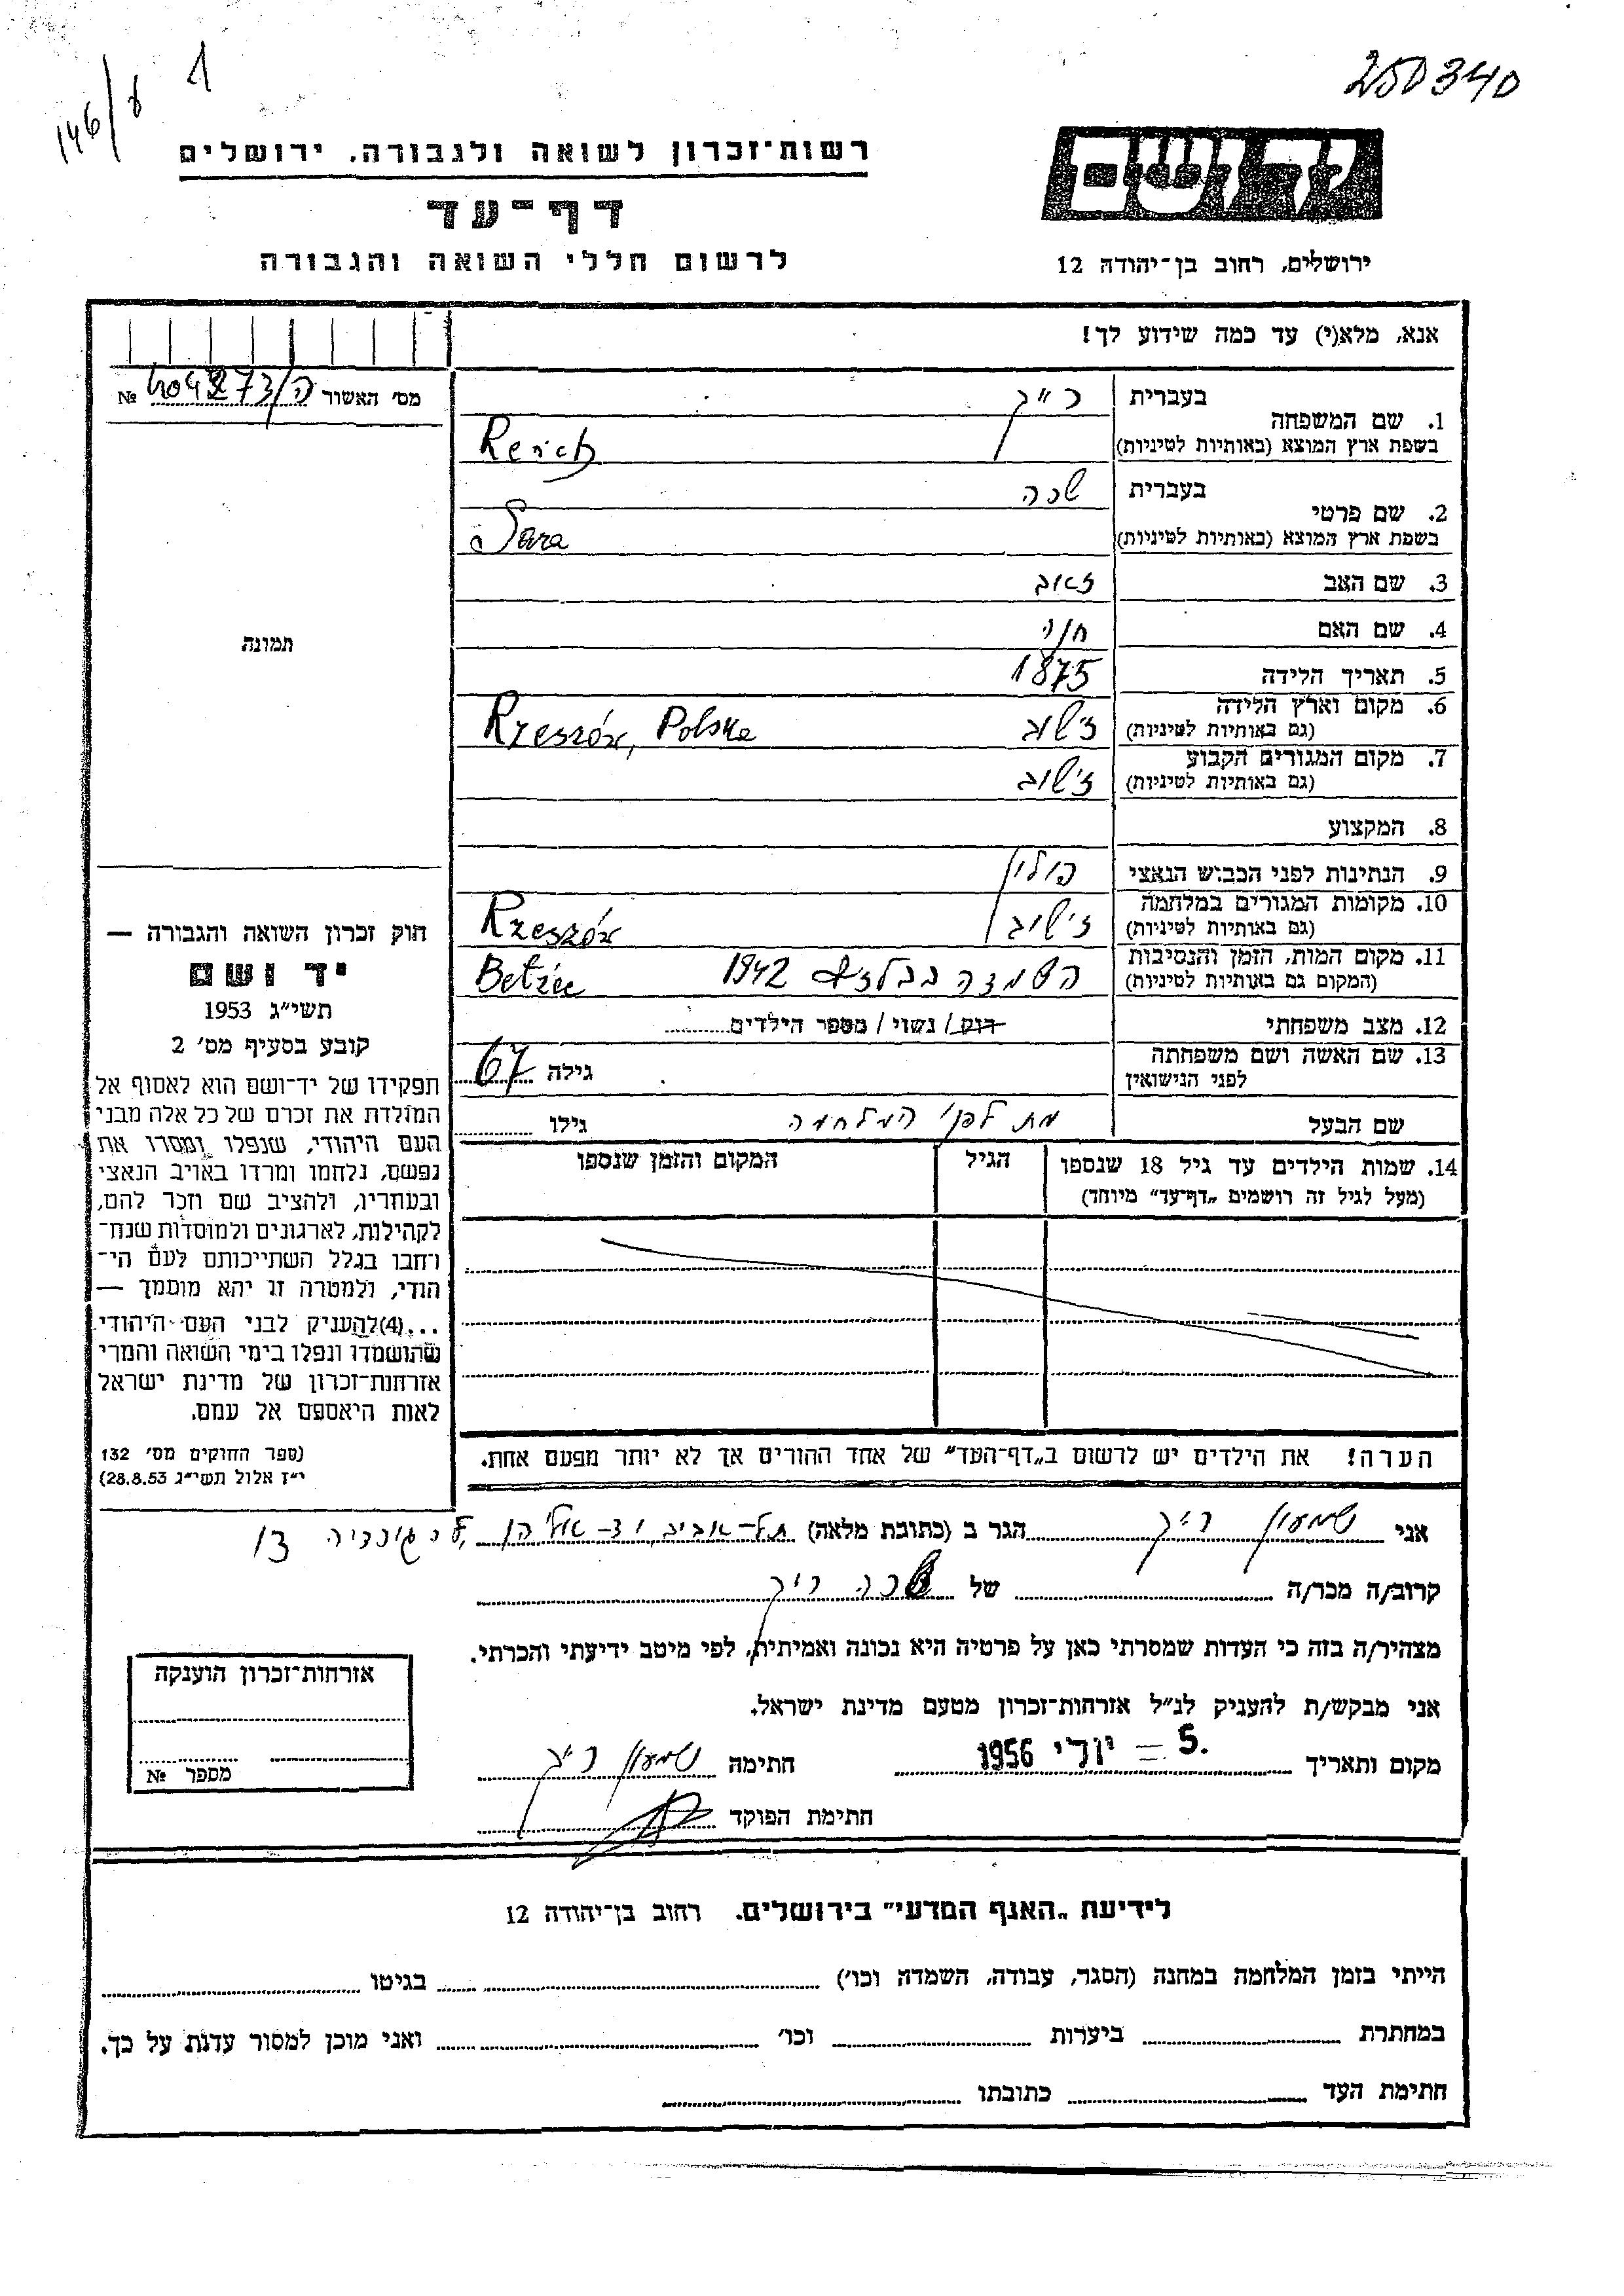 146/8 1
250340
רשות־זכרון לשואה ולגבורה, ירושלים
דף־עד
לרשום חללי השואה והגבורה
יד ושם
ירושלים, רחוב בן־יהודה 12
אנא, מלא(י) עד כמה שידוע לך!
מס' האשור №
1. שם המשפחה
בעברית רייך
בשפת ארץ המוצא (באותיות לטיניות) Reich
2. שם פרטי
בעברית שרה
בשפת ארץ המוצא (באותיות לטיניות) Sara
3. שם האב זאב
4. שם האם חנה
5. תאריך הלידה 1875
6. מקום וארץ הלידה
(גם באותיות לטיניות) ז'שוב Rzeszów, Polska
7. מקום המגורים הקבוע
(גם באותיות לטיניות) ז'שוב
8. המקצוע
9. הנתינות לפני הכבוש הנאצי פולין
10. מקומות המגורים במלחמה
(גם באותיות לטיניות) ז'שוב Rzeszów
11. מקום המות, הזמן והנסיבות
(המקום גם באותיות לטיניות) השמדה בבלזץ 1942 Bełżec
12. מצב משפחתי רווק / נשוי / מספר הילדים
13. שם האשה ושם משפחתה
לפני הנישואין גילה 67
שם הבעל מת לפני המלחמה גילו
14. שמות הילדים עד גיל 18 שנספו הגיל המקום והזמן שנספו
(מעל לגיל זה רושמים „דף־עד" מיוחד)
הערה! את הילדים יש לרשום ב„דף־העד" של אחד ההורים אך לא יותר מפעם אחת.
תמונה
חוק זכרון השואה והגבורה —
יד ושם
תשי"ג 1953
קובע בסעיף מס' 2
תפקידו של יד־ושם הוא לאסוף אל
המולדת את זכרם של כל אלה מבני
העם היהודי, שנפלו ומסרו את
נפשם, נלחמו ומרדו באויב הנאצי
ובעוזריו, ולהציב שם וזכר להם,
לקהילות, לארגונים ולמוסדות שנח־
רבו בגלל השתייכותם לעם הי־
הודי, ולמטרה זו יהא מוסמך —
...(4)להעניק לבני העם היהודי
שהושמדו ונפלו בימי השואה והמרי
אזרחות־זכרון של מדינת ישראל
לאות היאספם אל עמם.
(ספר החוקים מס' 132
י"ז אלול תשי"ג 28.8.53)
אני שמעון רייך הגר ב (כתובת מלאה) תל-אביב
קרוב/ה מכר/ה של שרה רייך
מצהיר/ה בזה כי העדות שמסרתי כאן על פרטיה היא נכונה ואמיתית, לפי מיטב ידיעתי והכרתי.
אני מבקש/ת להעניק לנ"ל אזרחות־זכרון מטעם מדינת ישראל.
מקום ותאריך 5. – יולי 1956 חתימה שמעון רייך
חתימת הפוקד
אזרחות־זכרון הוענקה
מספר №
לידיעת „האגף המדעי" בירושלים. רחוב בן־יהודה 12
הייתי בזמן המלחמה במחנה (הסגר, עבודה, השמדה וכו') בגיטו
במחתרת ביערות וכו' ואני מוכן למסור עדות על כך.
חתימת העד כתובתו